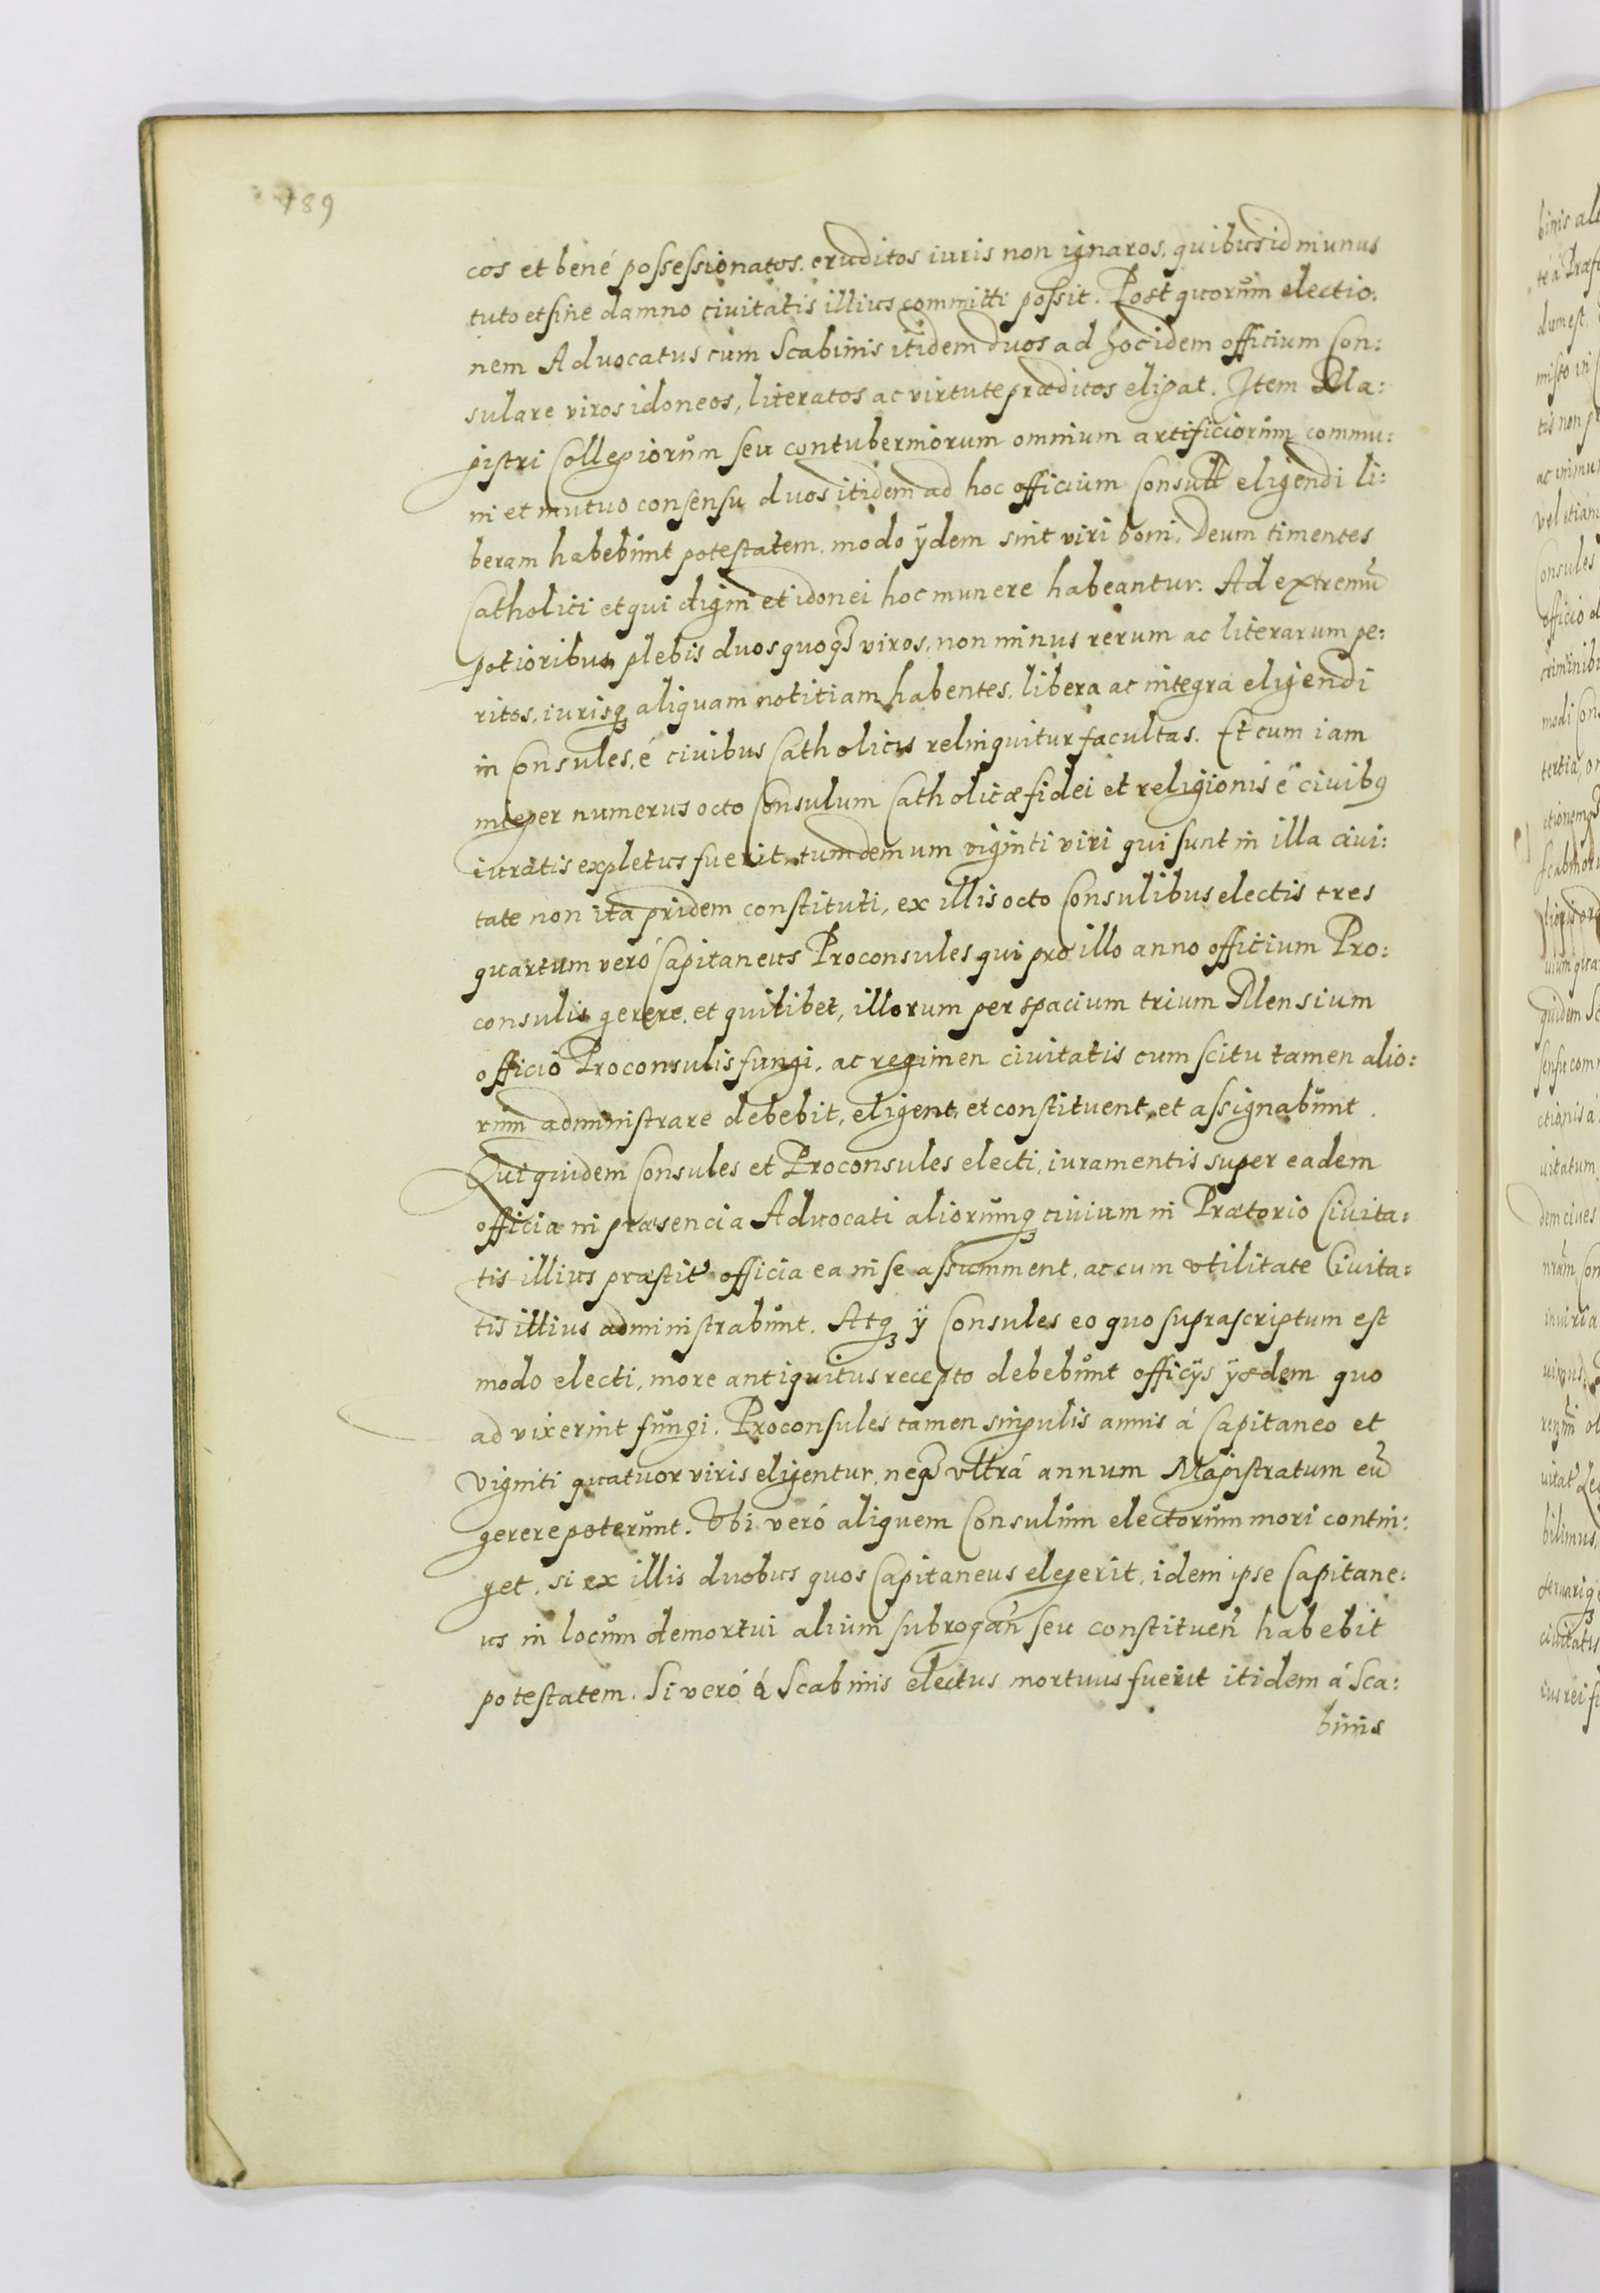 789
cos et bené possessionatos, eruditos iuris non ignaros, quibus id munus
tuto et sine damno ciuitatis illius committi possit. Post quorum electio,
nem Aduocatus cum Scabinis itidem duos ad hoc idem officium Con:
sulare viros idoneos, literatos ac virtute præditos eligat. Item Ma:
gistri Collegiorum seu contuberniorum omnium artificiorum commu:
ni et mutuo consensu duos itidem ad hoc officium eligendi li:
beram habebunt potestatem, modo ÿdem sint viri boni, Deum timentes
Catholici et qui digni et idonei hoc munere habeantur. Ad extremū
potioribus plebis duos quoqȝ viros, non minus rerum ac literarum pe:
ritos, iurisqȝ aliquam notitiam habentes, libera ac integra eligendi
in Consules, é ciuibus Catholicis relinquitur facultas. Et cum iam
integer numerus octo Consulum Catholicæ fidei et religionis é ciuibꝰ
iuratis expletus fuerit, tum demum viginti viri qui sunt in illa ciui:
tate non ita pridem constituti, ex illis octo Consulibus electis tres
quartum veró Capitaneus Proconsules qui pro illo anno officium Pro:
consulis gerere, et quilibet, illorum per spacium trium Mensium
officio Proconsulis fungi, ac regimen ciuitatis cum scitu tamen alio:
rum administrare debebit, eligent, et constituent, et assignabunt.
Qui quidem Consules et Proconsules electi, iuramentis super eadem
officia in præsencia Aduocati aliorumqȝ ciuium in Prætorio Ciuita:
tis illius præstitꝰ officia ea in se assumment, ac cum vtilitate Ciuita:
tis illius administrabunt. Atqȝ ÿ Consules eo quo suprascriptum est
modo electi, more antiquitus recepto debebunt officÿs ÿsdem quo
ad vixerint fungi. Proconsules tamen singulis annis á Capitaneo et
viginti quatuor viris eligentur, neqȝ vltrá annum Magistratum eū
gerere poterunt. Vbi veró aliquem Consulum electorum mori contin:
get, si ex illis duobus quos Capitaneus elegerit, idem ipse Capitane:
us in locum demortui alium subrogan̄ seu constituen̄ habebit
potestatem. Si veró á Scabinis electus mortuus fuerit itidem á Sca:
binis